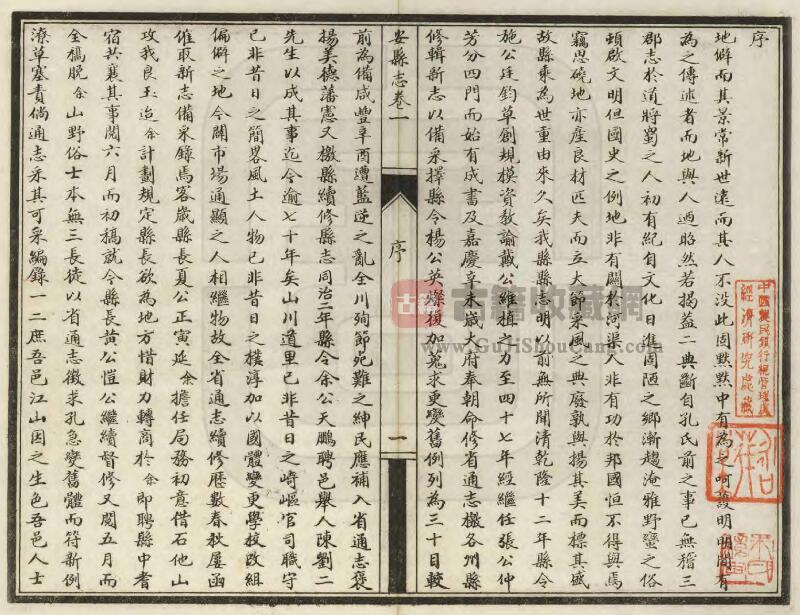 序
地僻而其景常新世遠而其人不没此固默默中有為之呵護明明間有
為之傳述者而地與人迺昭然若揭蓋二典斷自孔氏前之事已無稽三
郡志於道將蜀之人初有紀自文化日進固陋之鄉漸趨淹雅野蠻之俗
頓啟文明但國史之例地非有關於河渠人非有功於邦國恒不得與焉
竊思磽地亦產良材匹夫而立大節采風之典廢孰與揚其美而標其盛
故縣乘為世重由來久矣我縣縣志明以前無所聞清乾隆十二年縣令
施公廷鈞草創規模資教諭戴公維植之力至四十七年經繼任張公仲
芳分四門而始有成書及嘉慶辛未歲大府奉朝命修省通志檄各州縣
修輯新志以備采擇縣令楊公英燦復加蒐求更變舊例列為三十目較
安縣志卷一
序
一
前為備咸豐辛酉遭藍逆之亂全川殉節死難之紳民應補入省通志褒
揚美德藩憲又檄縣續修縣志同治二年縣令余公天鵬聘邑舉人陳劉二
先生以成其事迄今逾七十年矣山川道里已非昔日之崎嶇官司職守
已非昔日之簡畧風土人物已非昔日之樸淳加以國體變更學校改組
偏僻之地今闢市場通顯之人相繼物故全省通志續修歷數春秋屢函
催取新志備采錄焉客歲縣長夏公正寅延余擔任局務初意借石他山
攻我良玉迨余計劃規定縣長欲為地方惜財力轉商於余即聘縣中耆
宿共襄其事閱六月而初稿就今縣長黃公愷公繼續督修又閱五月而
全稿脫余山野俗士本無三長徒以省通志徵求孔急變舊體而符新例
潦草塞責倘通志采其可采編錄一二庶吾邑江山因之生色吾邑人士
中國農民銀行總管理處
經濟研究處藏
古籍收藏网
www.GuJiShouCang.com